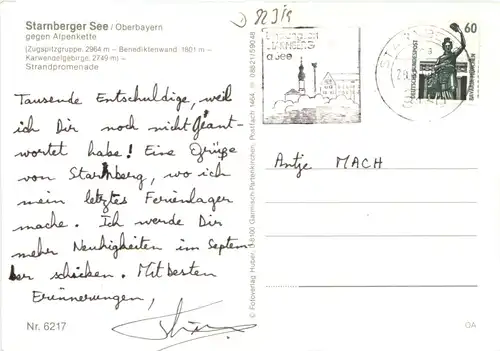 Starnberger See / Oberbayern
gegen Alpenkette
(Zugspitzgruppe. 2964 m – Benediktenwand 1801 m –
Karwendelgebirge. 2749 m) –
Strandpromenade
Tausende Entschuldige, weil
ich Dir noch nicht Geant-
wortet habe! Eine Grüße
von Starnberg, wo ich
mein letztes Ferienlager
mache. Ich werde Dir
mehr Neuhigkeiten im Septem-
ber schicken. Mit besten
Erinnerungen,
Nr. 6217
© Fotoverlag Huber. D-8100 Garmisch-Partenkirchen, Postfach 1454, ☎ 08821/59048
STARNBERG
a See
60
DEUTSCHE BUNDESPOST
Antje MACH
OA